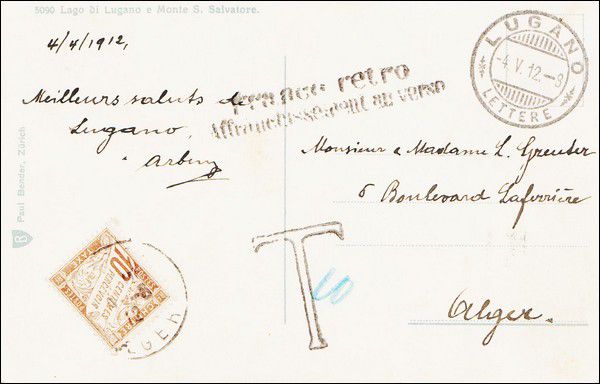 5090 Lago di Lugano e Monte S. Salvatore.
4/4/1912,
Meilleurs saluts de
Lugano,
franco retro
Affranchissement au verso
LUGANO
-4.V.12.-9
LETTERE
Monsieur & Madame L. Greuter
6 Boulevard Laferrière
Alger.
Paul Bender, Zürich
B
T
10
CENTIMES
A PERCEVOIR